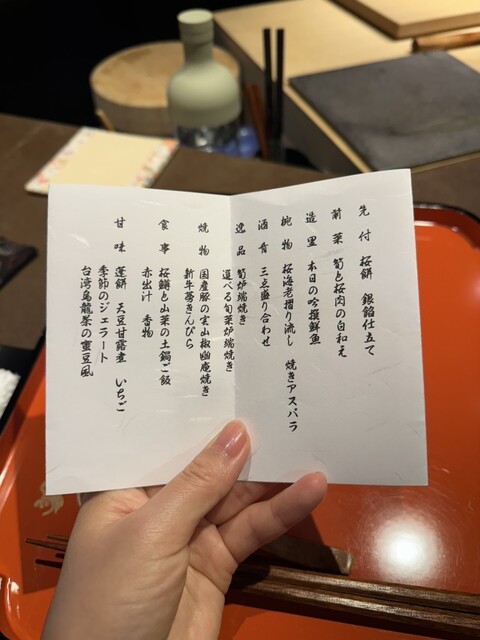 先付 桜餅 銀餡仕立て
前菜 筍と桜肉の白和え
造里 本日の吟撰鮮魚
椀物 桜海老摺り流し 焼きアスパラ
酒肴 三点盛り合わせ
逸品 筍炉端焼き
選べる旬菜炉端焼き
焼物 国産豚の雲山椒幽庵焼き
新牛蒡きんぴら
食事 桜鱒と山菜の土鍋ご飯
赤出汁 香物
甘味 蓬餅 天豆甘露煮 いちご
季節のジェラート
台湾烏龍茶の蜜豆風